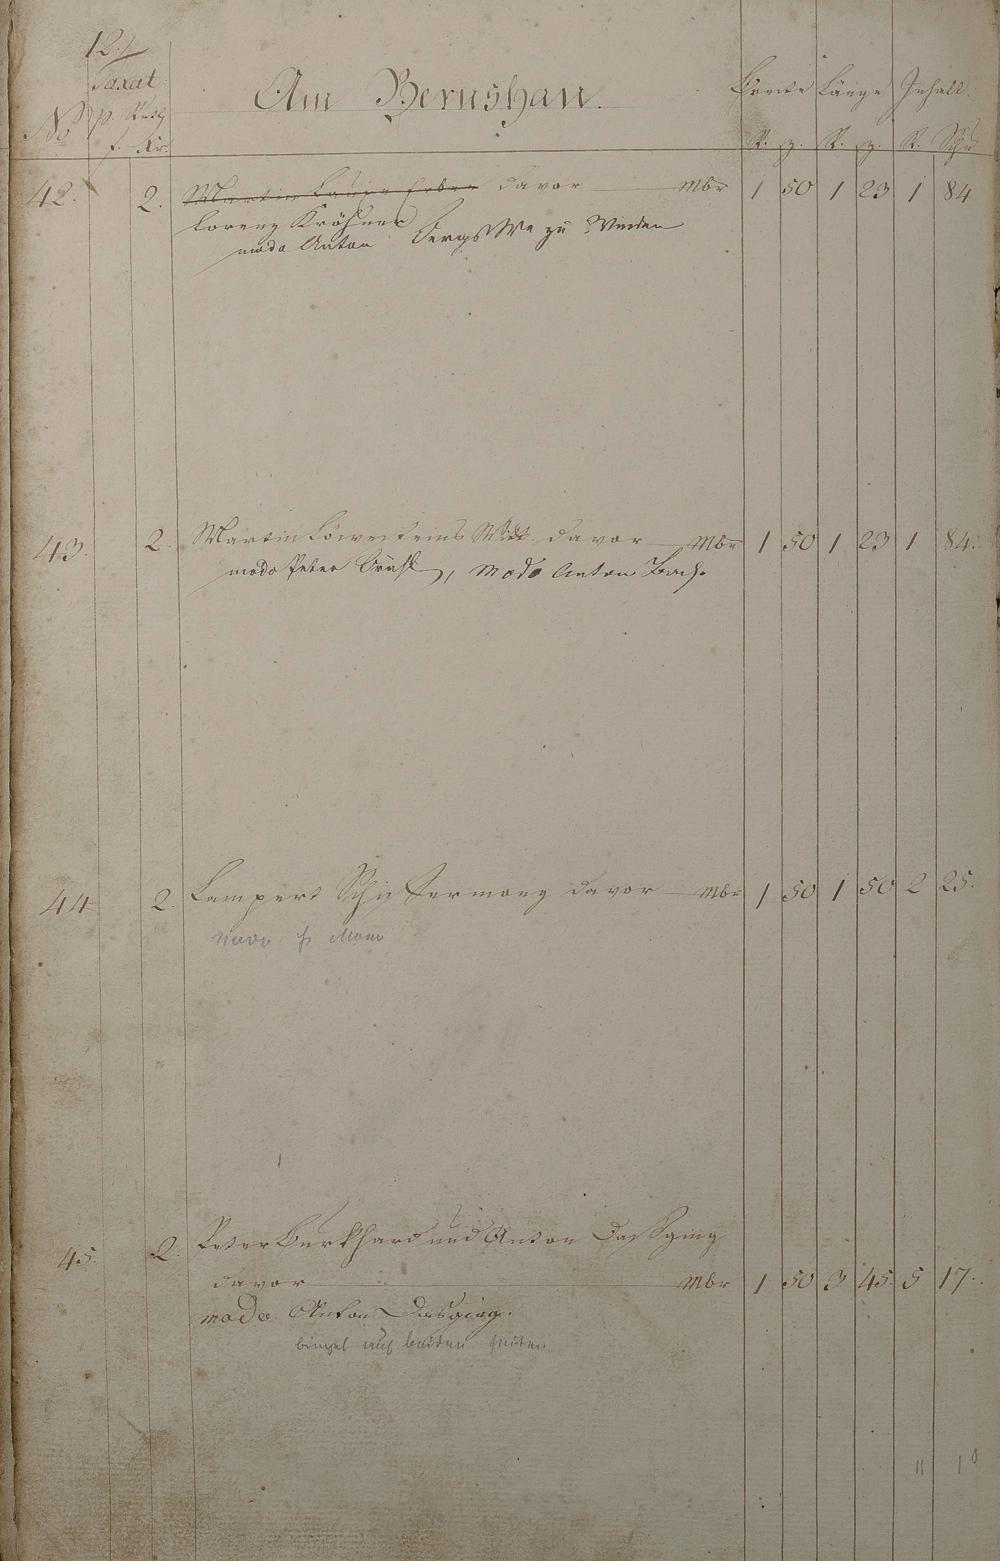 12.
Taxat
Am Bernshan. Breite Länge Inhalt.
No p. Ruth
f. Kr. R. R. R. Schu
42. 2. Martin Erben davor Mbr 1 50 1 23 1 84
Lorenz Kröhner
modo Anton Bergs We zu Winden
43. 2. Martin Löwensteins Witt. davor Mbr 1 50 1 23 1 84.
modo Peter, modo Anton Bach.
44 2. Lampert davor Mbr 1 50 1 50 2 25.
45. 2. Peter Burkhard und Anton Dasging
davor Mbr 1 50 3 45 5 17.
modo Anton Dasging.
auf beiden Seiten
11 10